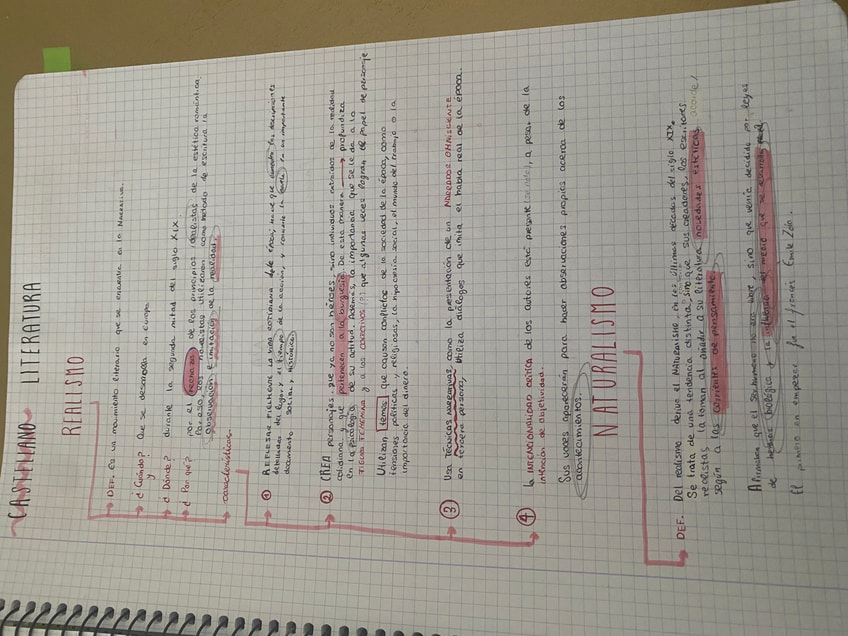 CASTELLANO LITERATURA
REALISMO
DEF. Es un movimiento literario que se encuentra en la Narrativa.
¿Cuándo? Que se desarrolla en Europa
¿Dónde? durante la segunda mitad del siglo XIX.
¿Por qué? por el rechazo de los principios idealistas de la estética romántica.
Por eso, los novelistas utilizaron como método de escritura la
observación e imitación de la realidad.
características.
① REFLEJAR fielmente la vida cotidiana época; hay que las descripciones
detalladas del lugar, y el tiempo de la acción, y convierte la en un importante
documento social y histórico
② CREA personajes, que ya no son héroes, sino individuos extraídos de la realidad
cotidiana y que pertenecen a la burguesía. De esta manera → profundiza
en la psicología de su actitud. Además, la importancia que se le da a la
FIGURA FEMENINA y a los que algunas veces logran de papel de personaje
Utilizan temas que causan conflictos de la sociedad de la época, como
tensiones políticas y religiosas, la hipocresía social, el mundo del trabajo o la
importancia del dinero.
③ Usa TÉCNICAS NARRATIVAS, como la presentación de un NARRADOR OMNISCIENTE
en tercera persona. Utiliza diálogos que imita el habla real de la época.
④ La INTENCIONALIDAD CRÍTICA de los autores está presente, a pesar de la
intención de objetividad.
Sus voces aparecerán para hacer observaciones propias acerca de los
acontecimientos.
NATURALISMO
DEF. Del realismo deriva el NATURALISMO, en las últimas décadas del siglo XIX.
Se trata de una tendencia distinta, sino que sus creadores, los escritores
realistas la toman al añadir a su literatura novedades estéticas, acorde
según a las corrientes de pensamiento.
Afirmaban que el ser humano no era libre, sino que venía decidido por leyes
de herencia biológica y la influencia el medio que se
El primero en empezar fue el francés Émile Zola.